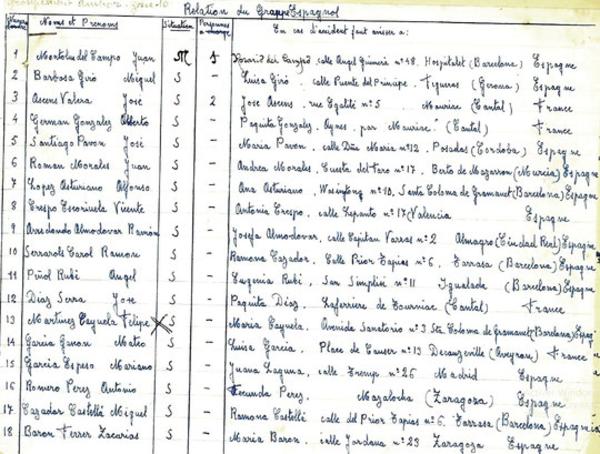 Relation du Groupe Espagnol
Noms et Prenoms Situation Personnes a charge En cas d'accident faut aviser a:
1 Juan M 1 calle Angel Guimerá nº 48. Hospitalet (Barcelona) Espagne
2 Barbosa Giró Miguel S - Luisa Giró. calle Puente del Principe. Figueras (Gerona) Espagne
3 Ascens Valera José S 2 Jose Ascens. rue Egalité nº 5 Mauriac (Cantal) France
4 German Gonzalez Alberto S - Paquita Gonzalez. par Mauriac (Cantal) France
5 Santiago Pavon José S - Maria Pavon. calle Dña Maria nº 12. Posadas (Cordoba) Espagne
6 Roman Morales Juan S - Andrea Morales. Cuesta del Faro nº 17. de Mazarron (Murcia) Espagne
7 Lopez Asturiano Alfonso S - Ana Asturiano. nº 10. Santa Coloma de Gramanet (Barcelona) Espagne
8 Crespo Escorihuela Vicente S - Antonio Crespo. calle Lepanto nº 17 (Valencia) Espagne
9 Arredondo Almodovar Ramón S - Josefa Almodovar. calle Capitan Varras nº 2 Almagro (Ciudad Real) Espagne
10 Serrarols Carol Ramon S - Ramona Cazador. Calle Prior Tapias nº 6. Tarrasa (Barcelona) Espagne
11 Piñol Rubi Angel S - Eugenia Rubi. San Simplisi nº 11 Igualada (Barcelona) Espagne
12 Diaz Serra Jose S - Paquita Diaz. Laferriere de Tourniac (Cantal) France
13 Martinez Cayuela Felipe S - Maria Cayuela. Avenida Sanatorio nº 3 Sta Coloma de Gramanet (Barcelona) Espagne
14 Garcia Ganon Mateo S - Luisa Garcia. Place de nº 13 Decazeville (Aveyron) France
15 Garcia Espeso Mariano S - Juana Laguna. calle Tremp nº 26 Madrid Espagne
16 Romero Perez Antonio S - Perez. (Zaragoza) Espagne
17. Cazador Castelli Miguel S - Ramona Castelli calle del Prior Tapias nº 6. Tarrasa (Barcelona) Espagne
18 Baron Ferrer Zacarias S - Maria Baron. calle Jordana nº 23 Zaragoza Espagne